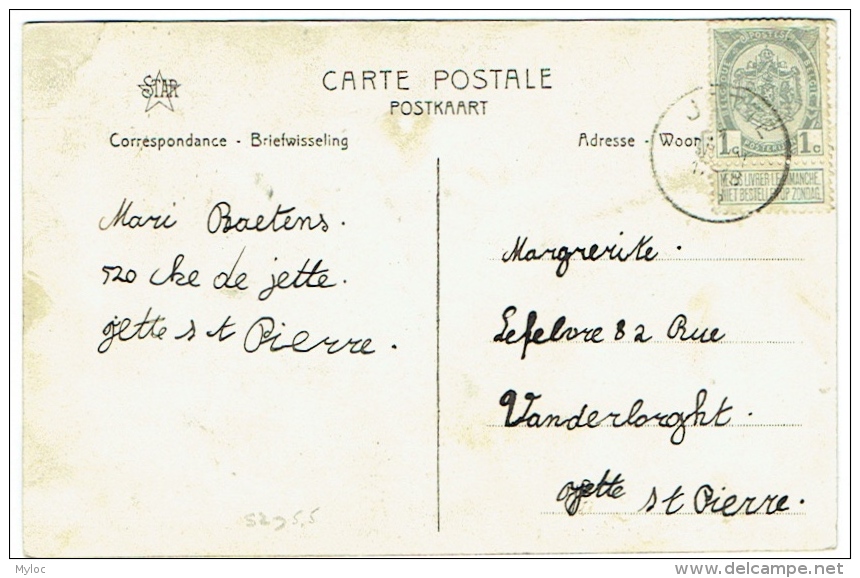 STAR
CARTE POSTALE
POSTKAART
Correspondance - Briefwisseling
Adresse - Woon
POSTES
1c 1c
POSTERIJ
NE PAS LIVRER LE DIMANCHE
NIET BESTELLEN OP ZONDAG
Mari Baetens.
520 Che de jette.
jette st Pierre.
Margrerite.
Lefelvre 82 Rue
Vanderlorght.
jette st Pierre.
Myloc
delcampe.net